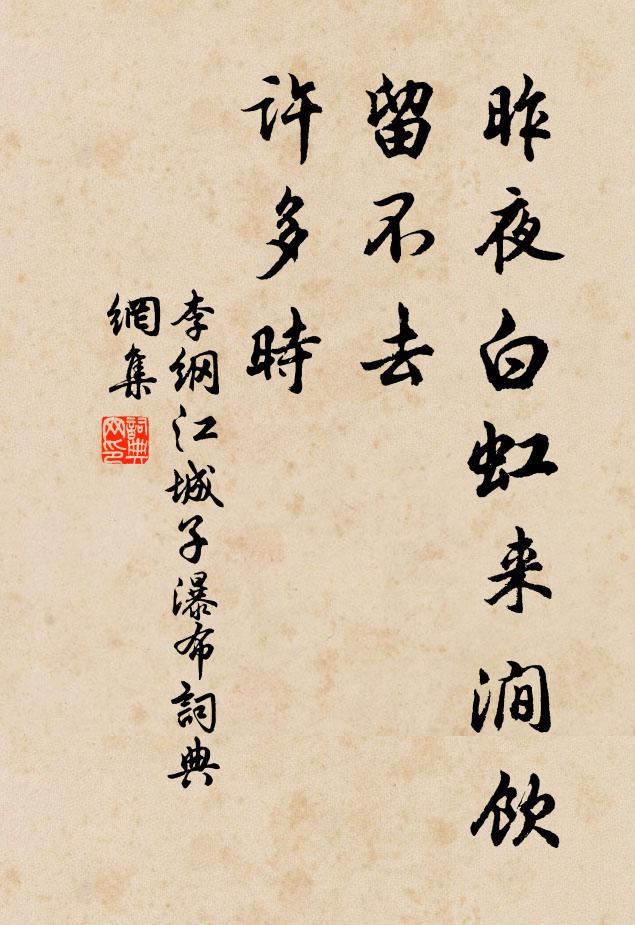 昨夜白虹来澗飲
留不去
許多時
李綱江城子瀑布詞典
網集
詞典网印